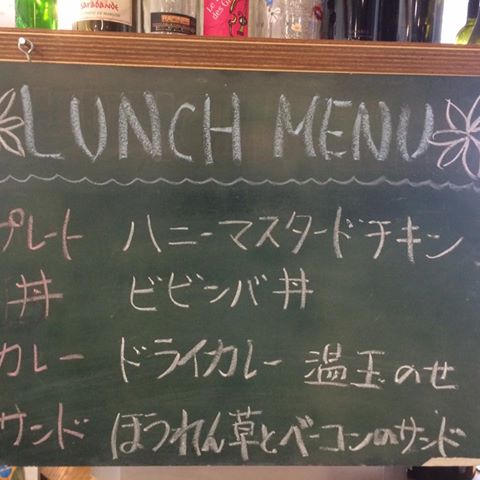 Saradande
LUNCH MENU
プレート ハニーマスタードチキン
丼 ビビンバ丼
カレー ドライカレー 温玉のせ
サンド ほうれん草とベーコンのサンド